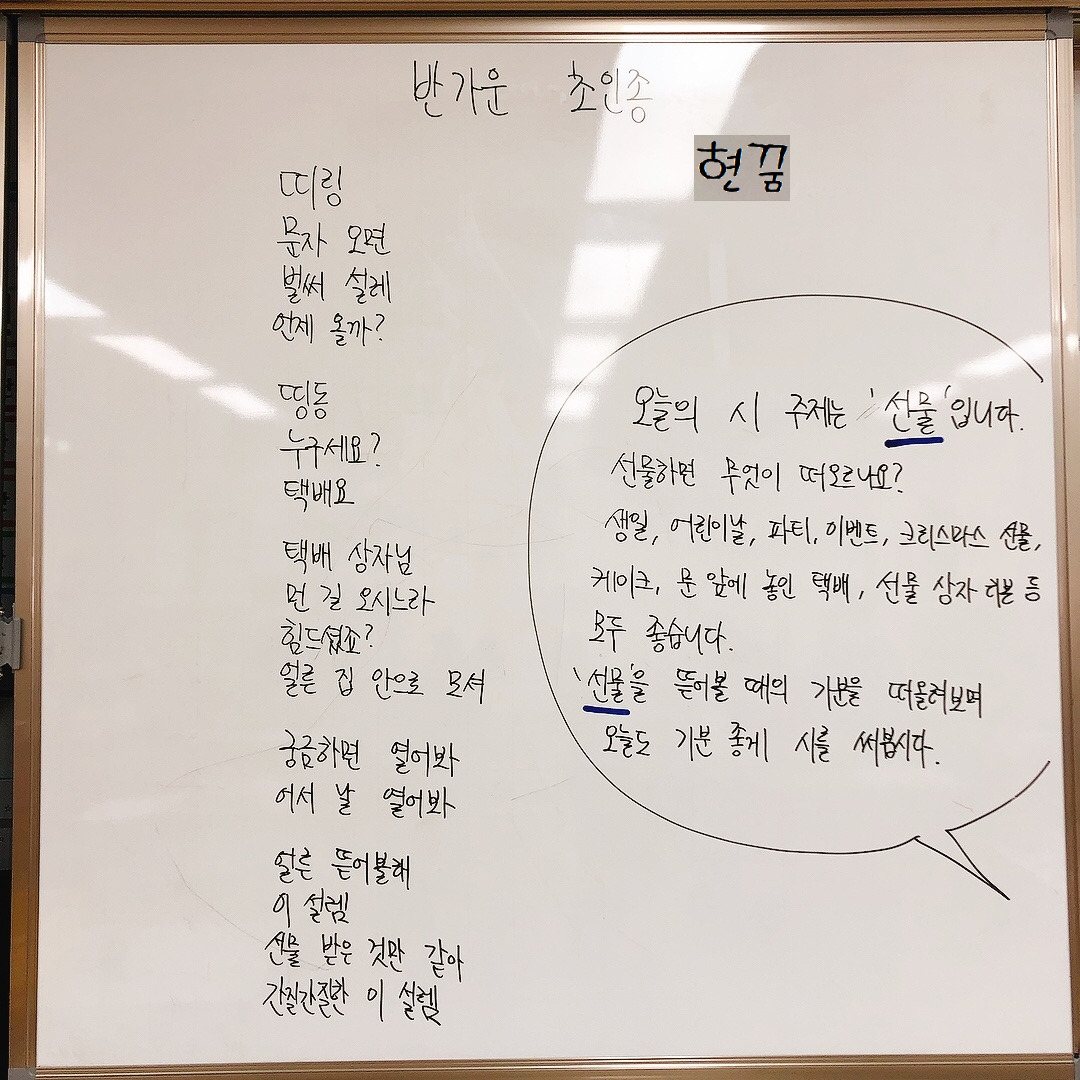 반가운 초인종
현꿈
띠링
문자 오면
벌써 설레
언제 올까?
띵동
누구세요?
택배요
택배 상자님
먼 길 오시느라
힘드셨죠?
얼른 집 안으로 모셔
궁금하면 열어봐
어서 날 열어봐
얼른 뜯어볼래
이 설렘
선물 받은 것만 같아
간질간질한 이 설렘
오늘의 시 주제는 '선물'입니다.
선물하면 무엇이 떠오르나요?
생일, 어린이날, 파티, 이벤트, 크리스마스 선물,
케이크, 문 앞에 놓인 택배, 선물 상자 리본 등
모두 좋습니다.
'선물'을 뜯어볼 때의 기분을 떠올려보며
오늘도 기분 좋게 시를 써봅시다.